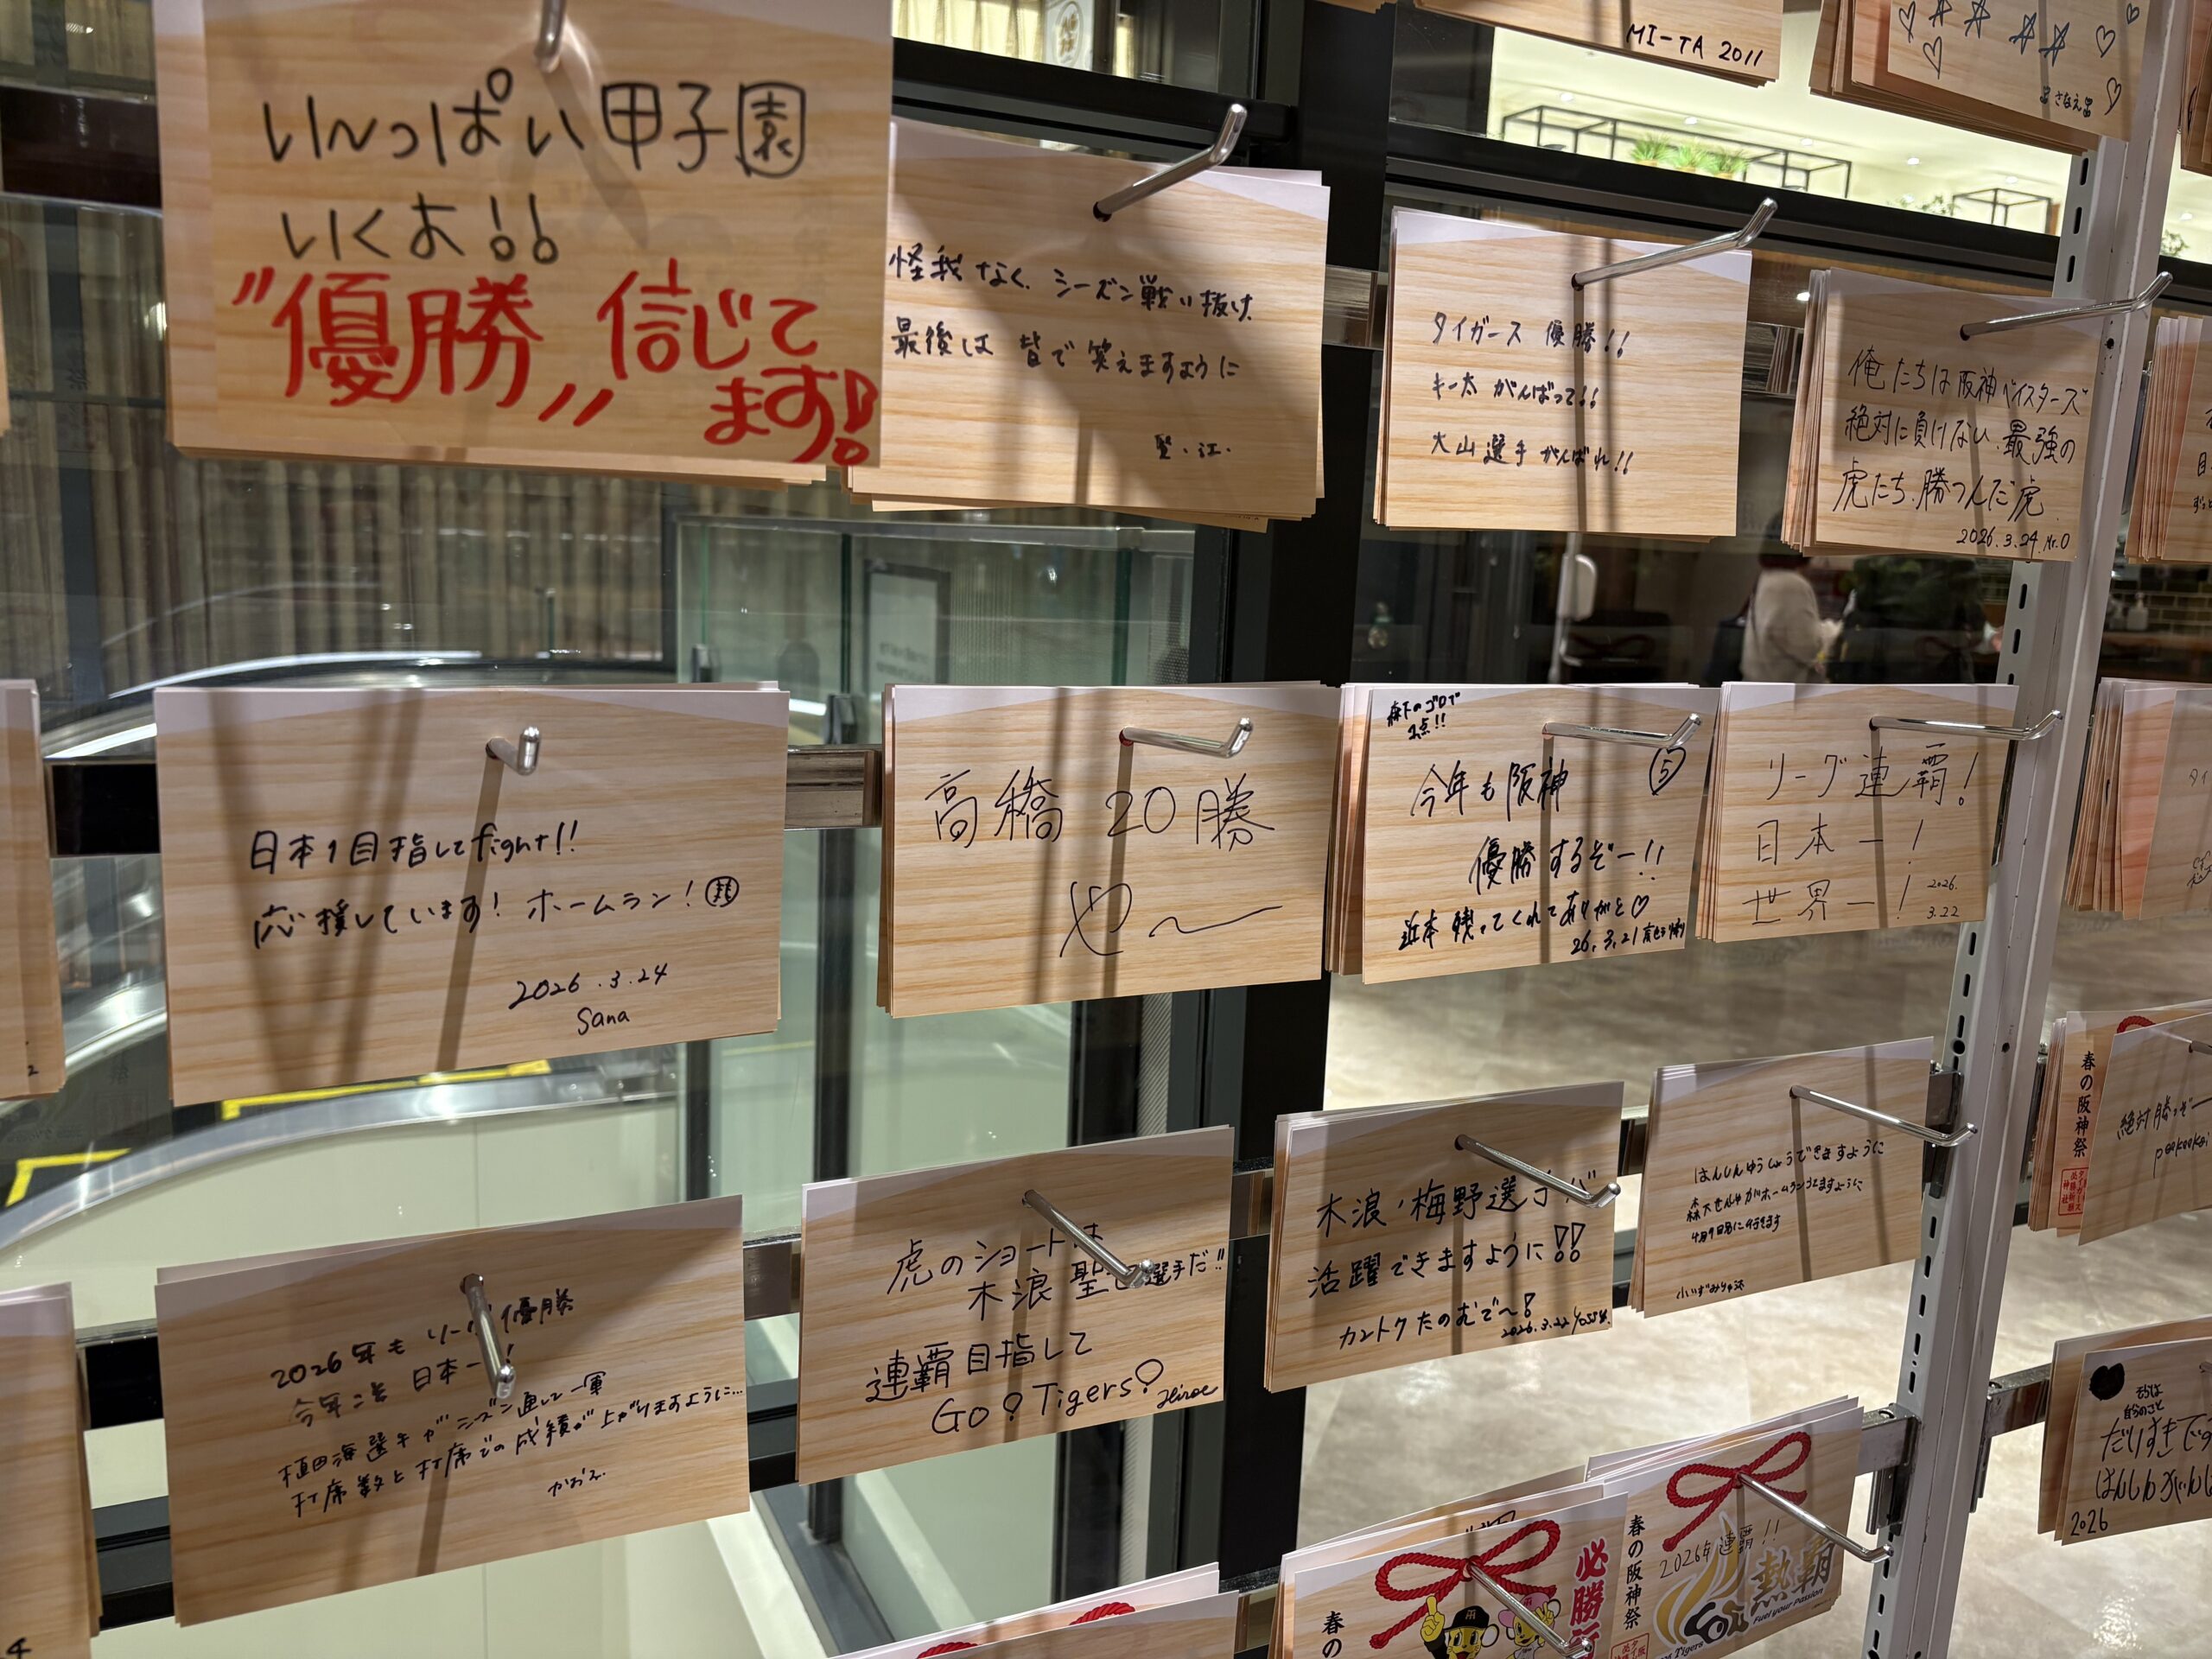 MI-TA 2011
さなえ
い〜っぱい甲子園
いくよ!!
"優勝" 信じて
ます!
怪我なく、シーズン戦い抜け、
最後は 皆で笑えますように
聖・江・
タイガース 優勝!!
キー太 がんばって!!
大山選手 がんばれ!!
俺たちは阪神ベイスターズ
絶対に負けない、最強の
虎たち、勝つんだ虎
2026.3.24 Mr.O
日本1目指してfight!!
応援しています! ホームラン!
2026.3.24
Sana
高橋 20勝
や〜
森下のゴロで
2点!!
今年も阪神 ⑤
優勝するぞー!!
近本 残ってくれてありがと♡
26.3.21
リーグ連覇!
日本一!
世界一!
2026.
3.22
2026年も リーグ優勝
今年こそ 日本一!
植田海選手がシーズン通して一軍
打席数と打席での成績が上がりますように…
かおえ
虎のショートは
木浪 聖 選手だ!!
連覇目指して
Go! Tigers! Hiroe
木浪・梅野選手が
活躍できますように!!
カントクたのむで〜!
2026.3.22
はんしんゆうしょうできますように
森下せんしゅがホームランうてますように
4月9日見に行きます
春の阪神祭
絶対勝つぞー
自分のこと
だいすきです
2026
春の
必勝
春の阪神祭
2026年連覇!!
熱覇
Fuel your Passion
Tigers